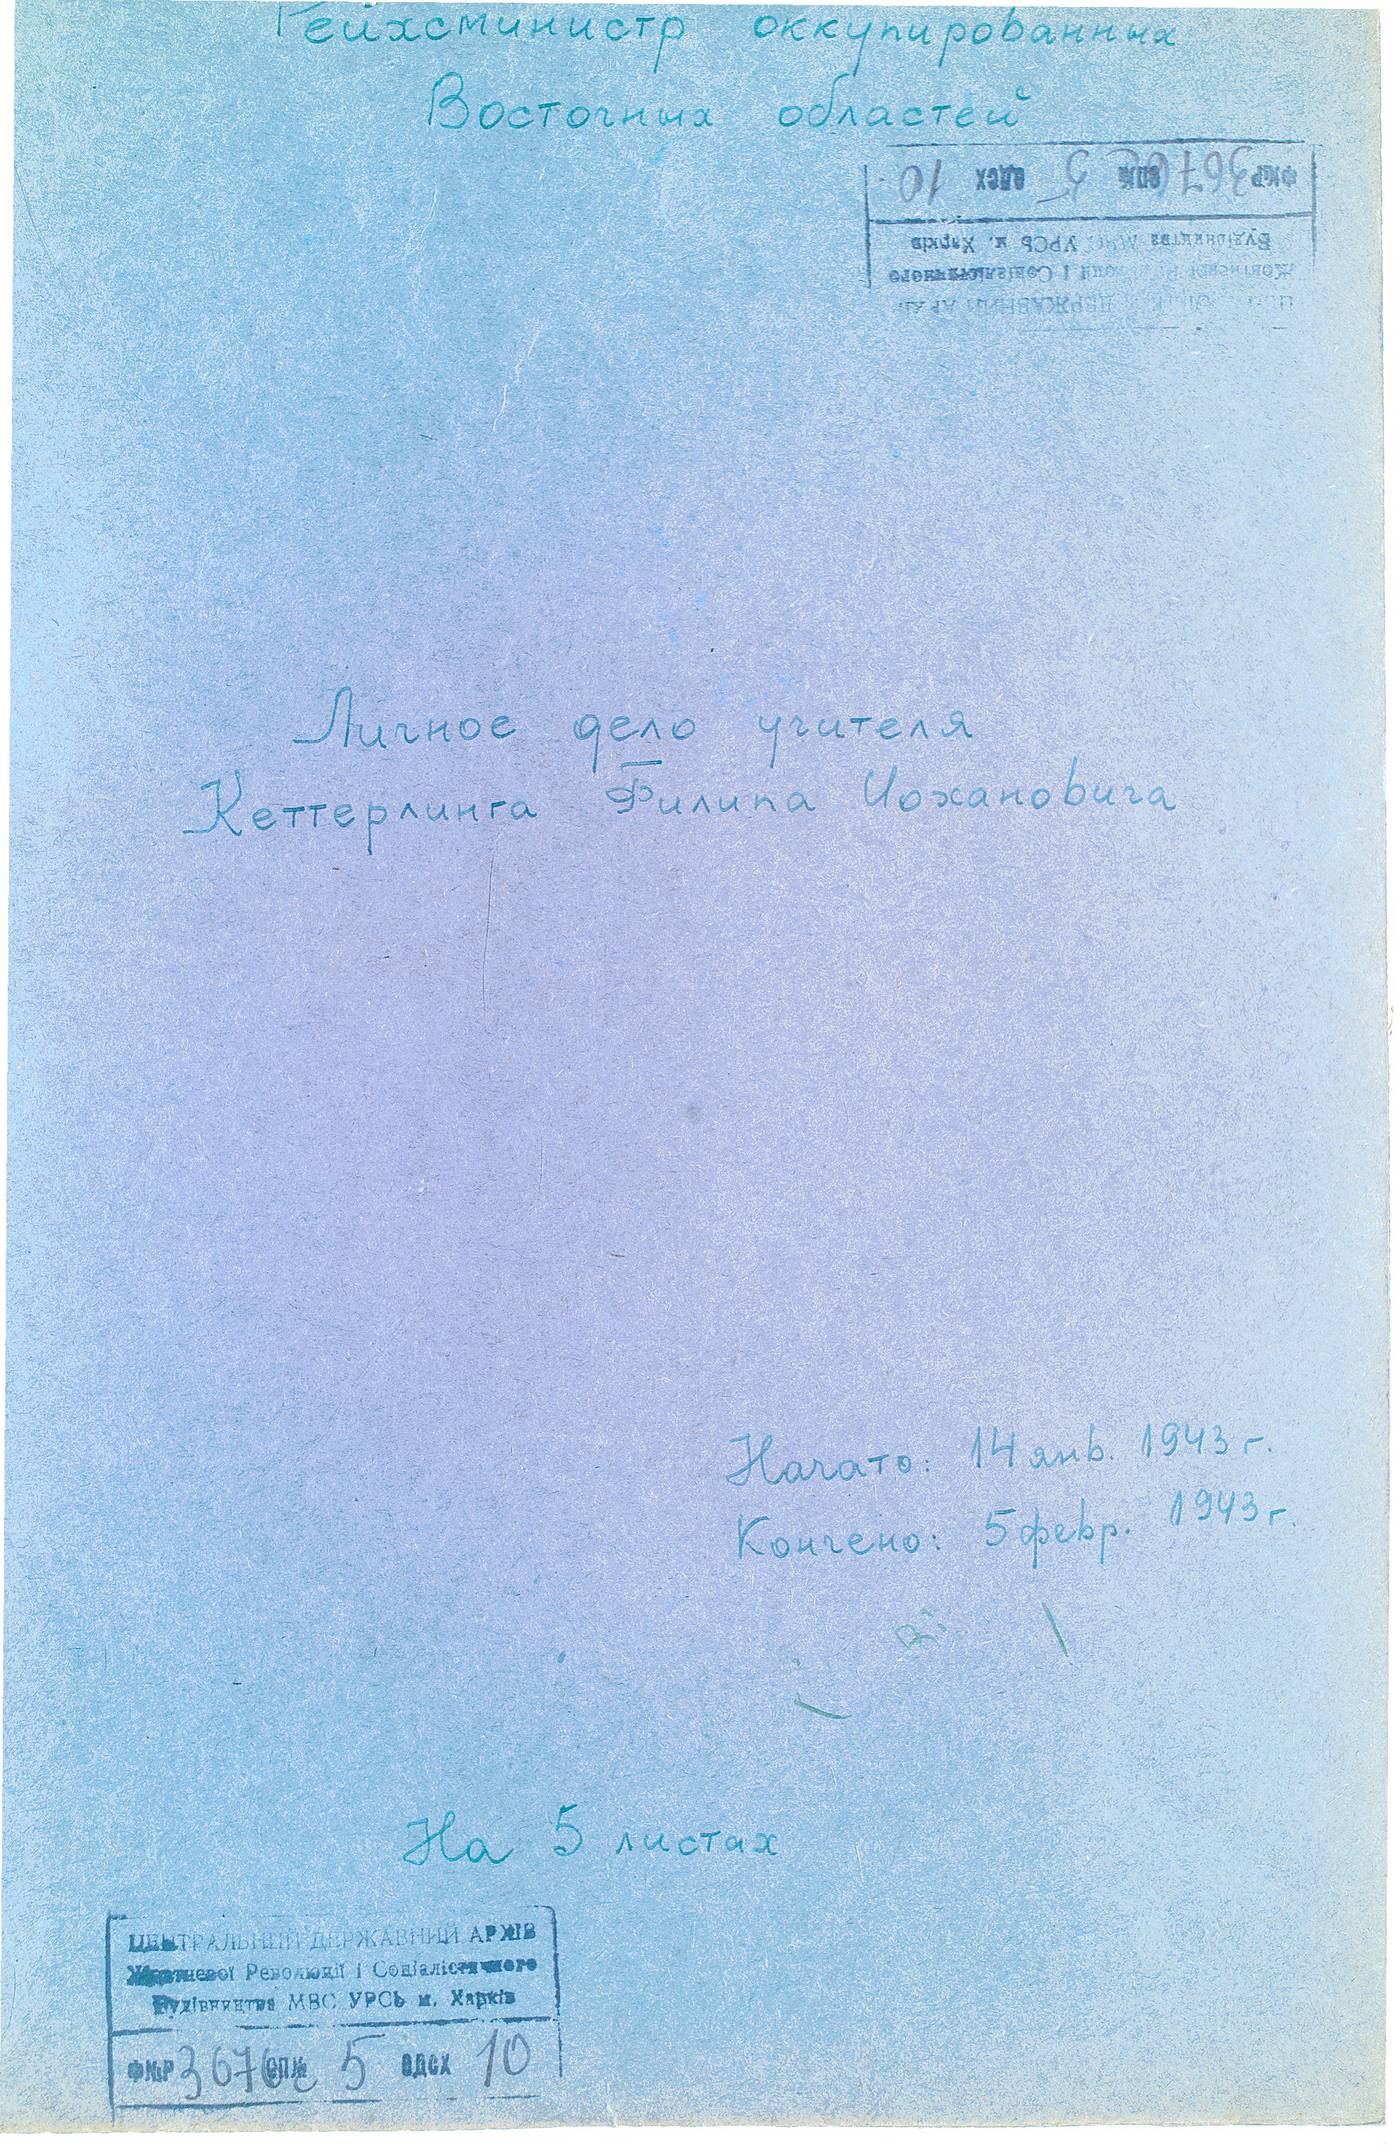 Рейхсминистр оккупированных
Восточных областей
ФМР 3676с ОПМ 5 ОДСХ 10
Будівництва МВС УРСЬ м. Харків
Жовтневої Революції і Соціалістичного
ДЕРЖАВНИЙ АРХІВ
Личное дело учителя
Кеттерлинга Филипа Иохановича
Начато: 14 янв. 1943 г.
Кончено: 5 февр. 1943 г.
На 5 листах
ЦЕНТРАЛЬНИЙ ДЕРЖАВНИЙ АРХІВ
Жовтневої Революції і Соціалістичного
Будівництва МВС УРСЬ м. Харків
ФМР 3676с ОПМ 5 ОДСХ 10